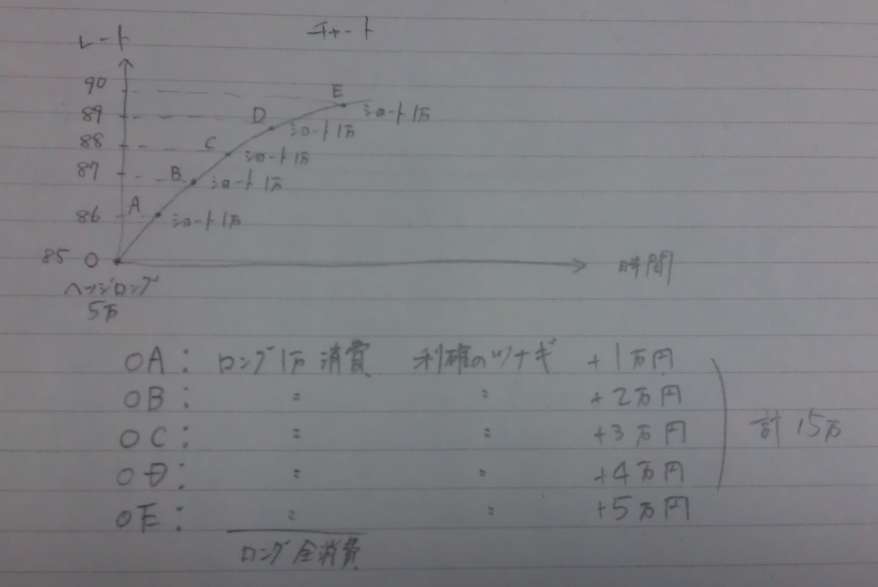 チャート
レート
90
E
ショート1万
89
D
ショート1万
88
C
ショート1万
87
B
ショート1万
86
A
ショート1万
85 O
時間
ヘッジロング
5万
OA: ロング1万 消費 利確のツナギ +1万円
OB: 〃 〃 +2万円
OC: 〃 〃 +3万円
OD: 〃 〃 +4万円
OE: 〃 〃 +5万円
計15万
ロング全消費